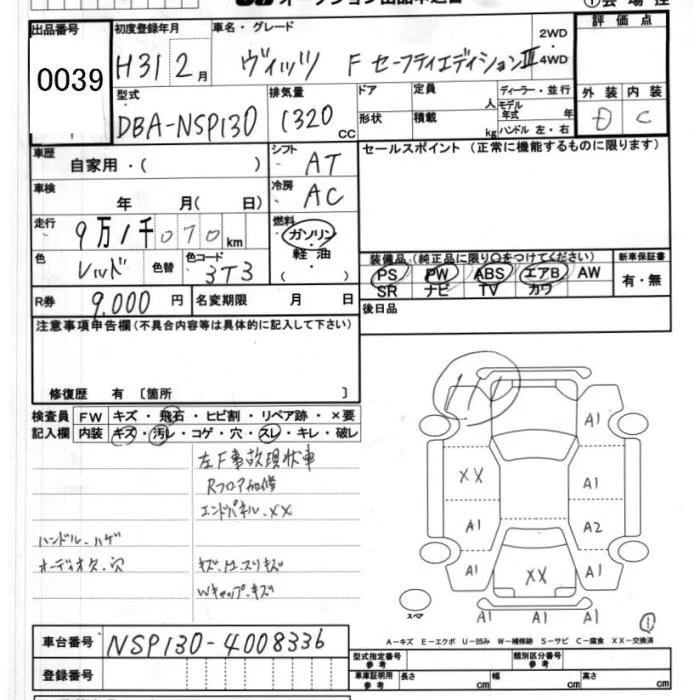 出品番号 初度登録年月 車名・グレード 評価点
0039 H31 2月 ヴィッツ F セーフティエディションⅢ 2WD 4WD
型式 排気量 ドア 定員 人 ディーラー・並行 外装 内装
DBA-NSP130 1320 CC 形状 積載 kg モデル年式 年 ハンドル 左・右 D C
車歴 自家用・( ) シフト AT セールスポイント (正常に機能するものに限ります)
車検 年 月( 日) 冷房 AC
走行 9万1千070km 燃料 ガソリン・軽油・( )
色 レッド 色替 色コード 3T3 装備品(純正品に限り○をつけてください) 新車保証書
PS PW ABS エアB AW 有・無
SR ナビ TV カワ
R券 9.000円 名変期限 月 日 後日品
注意事項申告欄(不具合内容等は具体的に記入して下さい)
修復歴 有〔箇所 〕
検査員 FW キズ・飛石・ヒビ割・リペア跡・×要
記入欄 内装 キズ・汚レ・コゲ・穴・スレ・キレ・破レ
左F事故現状車
Rフロア加修
エンドパネル.XX
ハンドル.ハゲ
オーディオ久.穴
Wキャップ.キズ
A1
XX A1
A1 A2
A1 XX A1
A1 A1 A1
スペア
1
A-キズ E-エクボ U-凹み W-補修跡 S-サビ C-腐食 XX-交換済
車台番号 NSP130-4008336
型式指定番号 参考 類別区分番号 参考
登録番号 車庫証明用 参考 長さ cm 幅 cm 高さ cm